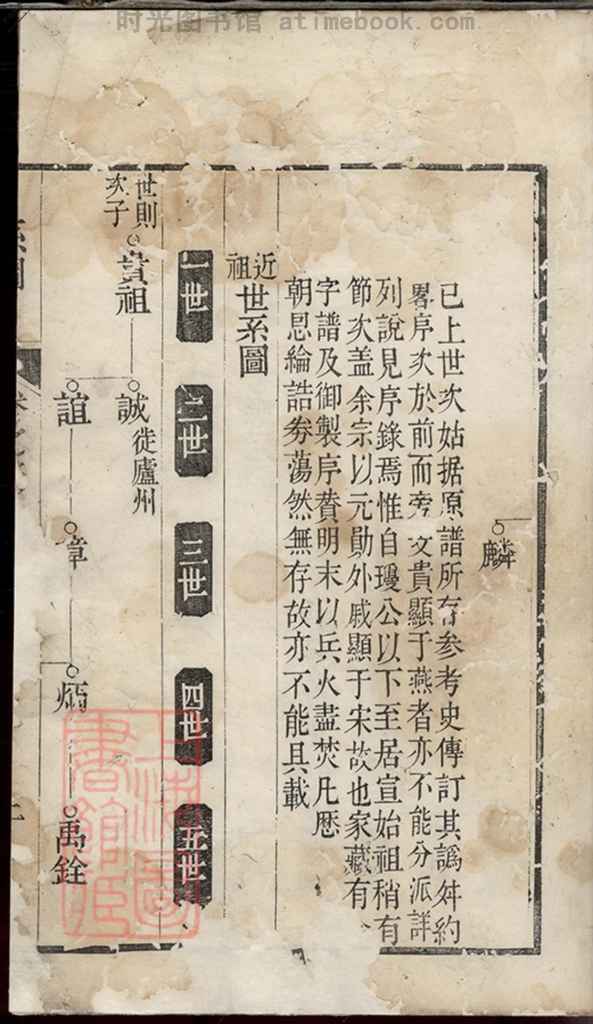 时光图书馆 atimebook.com
麟
已上世次姑据原譜所存参考史傳訂其譌舛約
畧序次於前而旁文貴顯于燕者亦不能分派詳
列說見序錄焉惟自瓊公以下至居宣始祖稍有
節次盖余宗以元勛外戚顯于宋故也家藏有
字譜及御製序賛明末以兵火盡焚凡厯
朝恩綸誥劵蕩然無存故亦不能具載
近祖世系圖
一世 二世 三世 四世 五世
世則次子 貴祖 誠 徙廬州
誼 璋 炳 禹銓